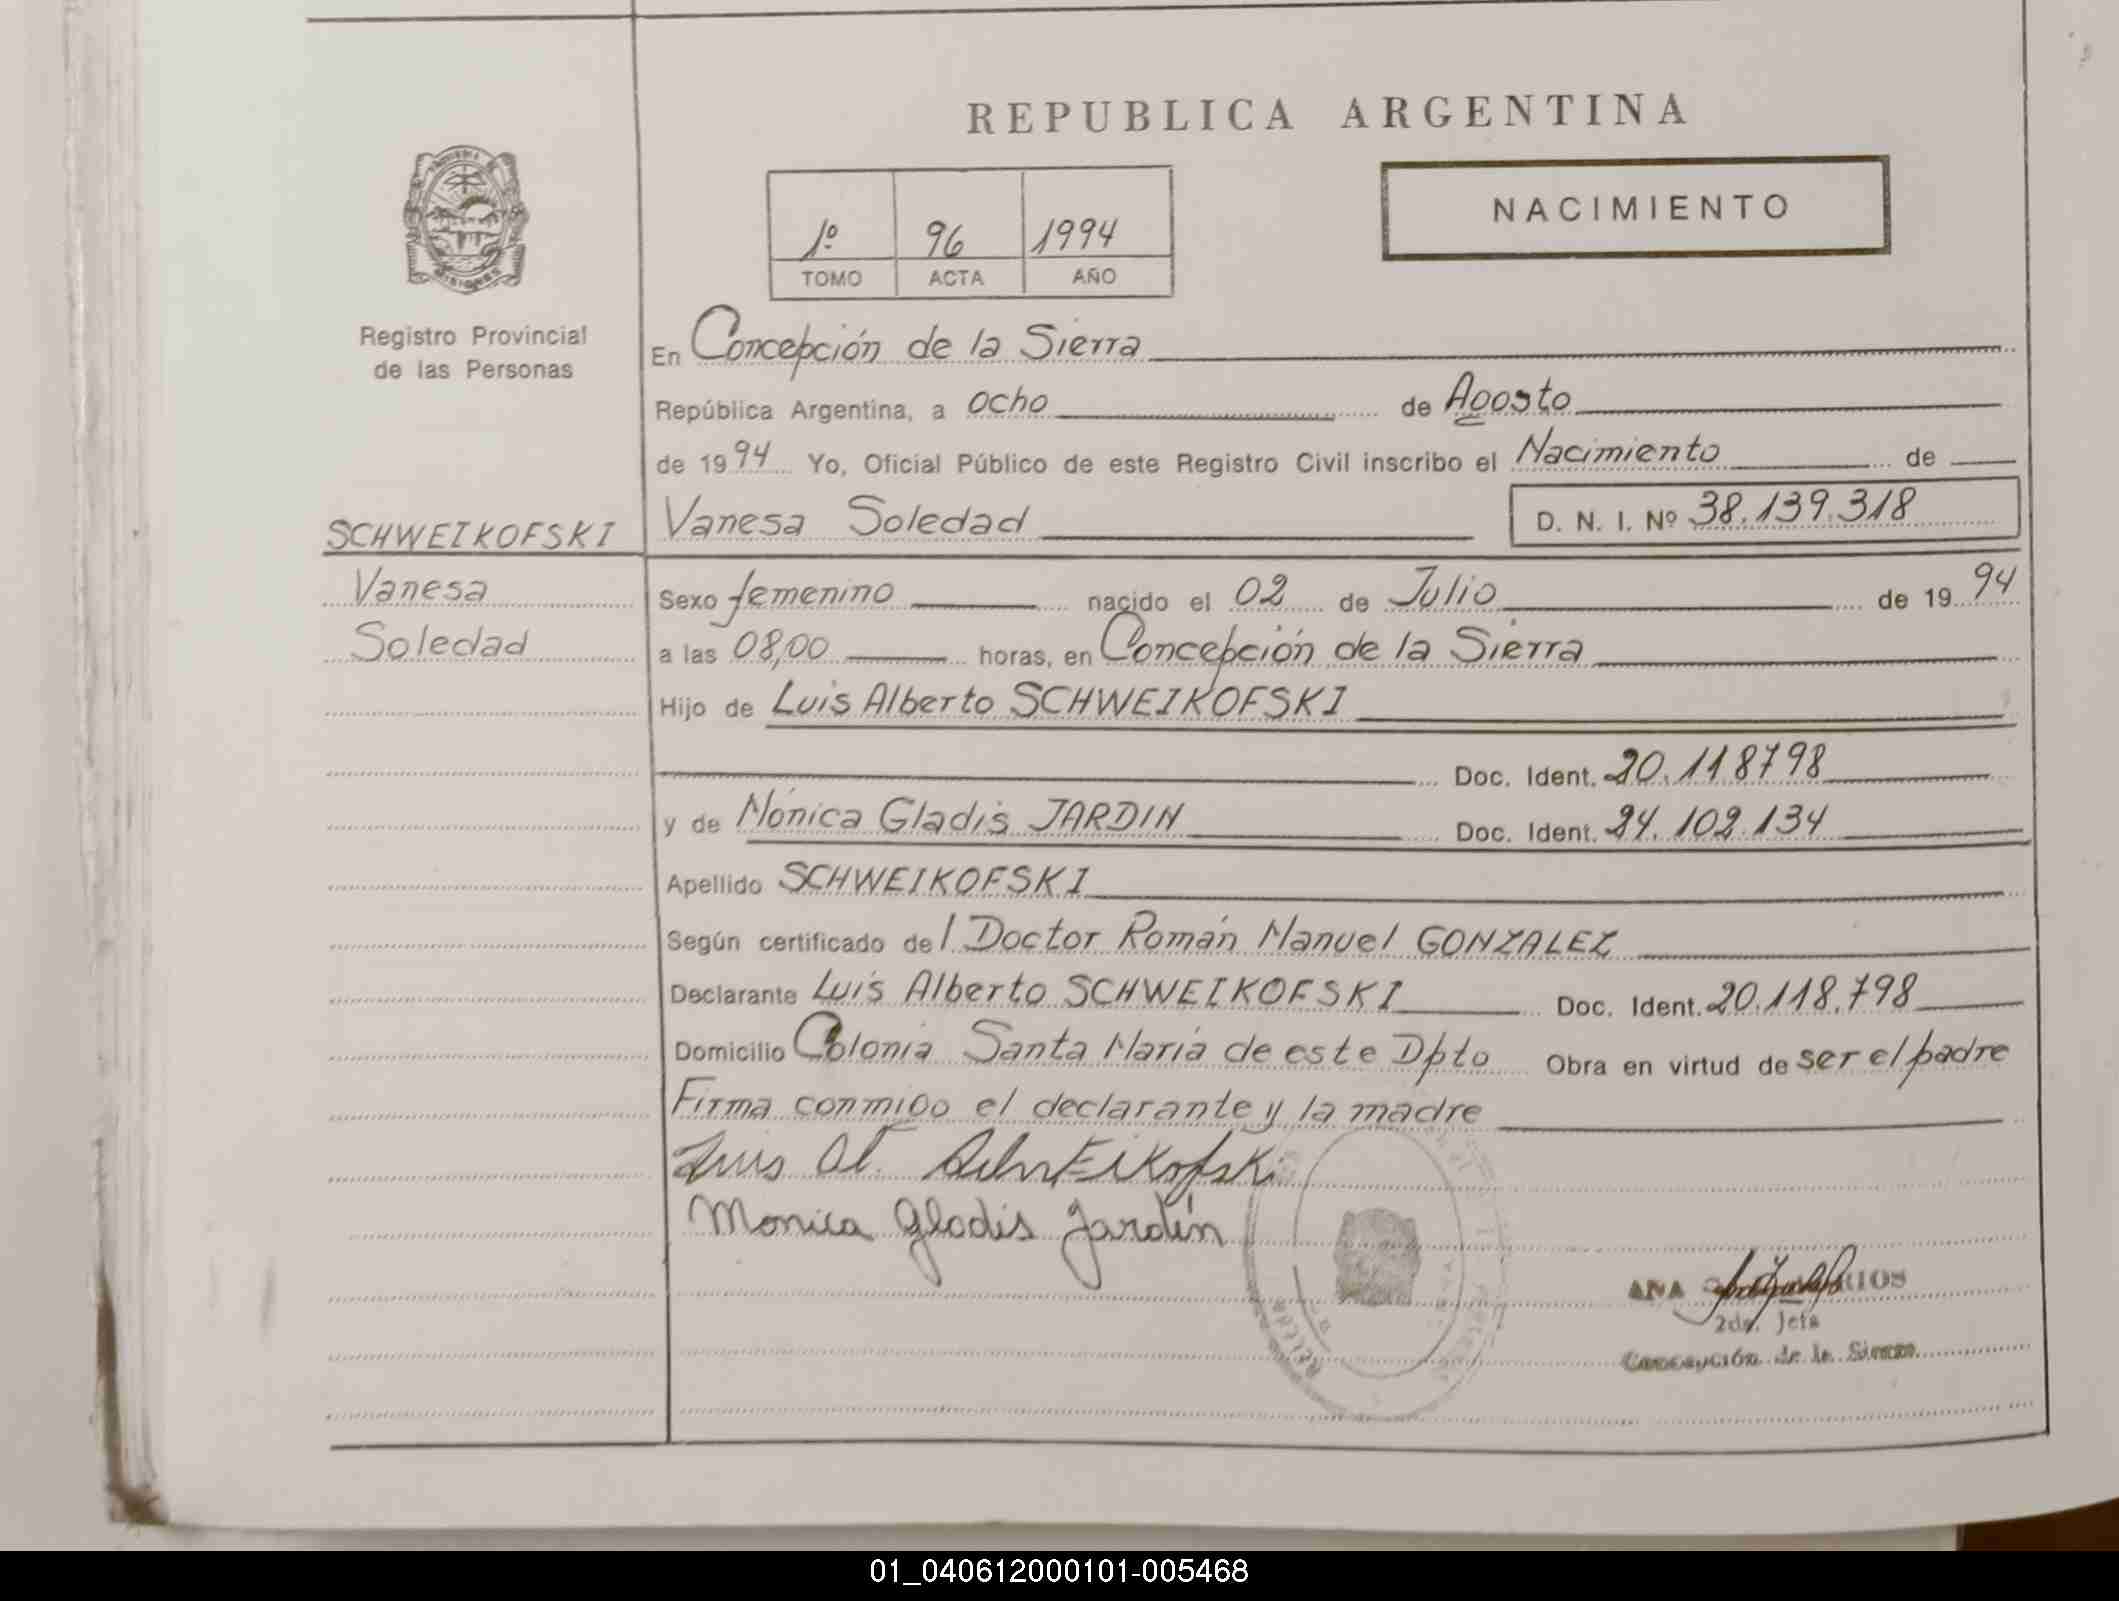 REPUBLICA ARGENTINA
NACIMIENTO
1º 96 1994
TOMO ACTA AÑO
Registro Provincial
de las Personas
En Concepción de la Sierra
República Argentina, a ocho de Agosto
de 1994 Yo, Oficial Público de este Registro Civil inscribo el Nacimiento de
SCHWEIKOFSKI
Vanesa Soledad D. N. I. Nº 38.139.318
Vanesa
Sexo femenino nacido el 02 de Julio de 1994
Soledad
a las 08,00 horas, en Concepción de la Sierra
Hijo de Luis Alberto SCHWEIKOFSKI
Doc. Ident. 20.118798
y de Mónica Gladis JARDIN Doc. Ident. 24.102.134
Apellido SCHWEIKOFSKI
Según certificado del Doctor Román Manuel GONZALEZ
Declarante Luis Alberto SCHWEIKOFSKI Doc. Ident. 20.118.798
Domicilio Colonia Santa María de este Dpto Obra en virtud de ser el padre
Firma conmigo el declarante y la madre
Luis Al. SchwEikofski
Monica Gladis Jardín
ANA
2da. Jefa
Concepción de la Sierra
01_040612000101-005468